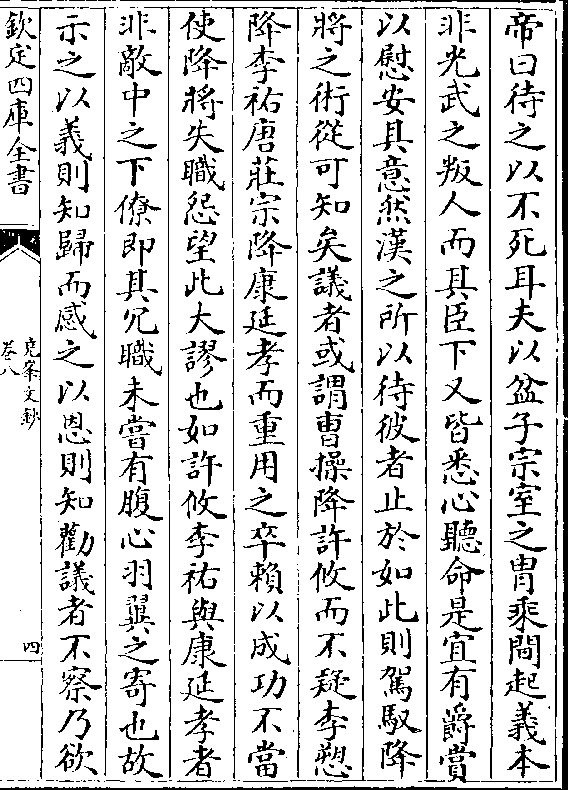 帝曰待之以不死耳夫以盆子宗室之胄乘間起義本
非光武之叛人而其臣下又皆悉心聽命是宜有爵賞
以慰安其意然漢之所以待彼者止於如此則駕馭降
將之術從可知矣議者或謂曹操降許攸而不疑李愬
降李祐唐莊宗降康延孝而重用之卒賴以成功不當
使降將失職怨望此大謬也如許攸李祐與康延孝者
非敵中之下僚即其冗職未嘗有腹心羽翼之寄也故
示之以義則知歸而感之以恩則知勸議者不察乃欲
欽定四庫全書
堯峯文鈔
卷八
四